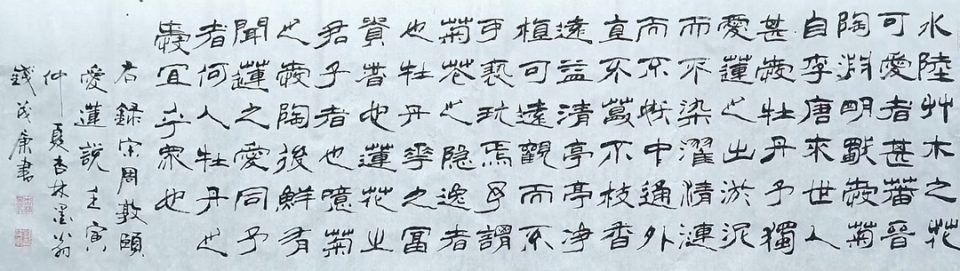 水陸艸木之花
可愛者甚蕃晉
陶淵明獨愛菊
自李唐來世人
甚愛牡丹予獨
愛蓮之出淤泥
而不染濯清漣
而不妖中通外
直不蔓不枝香
遠益清亭亭淨
植可遠觀而不
可褻玩焉予謂
菊花之隐逸者
也牡丹華之富
貴者也蓮花之
君子者也噫菊
之愛陶後鮮有
聞蓮之愛同予
者何人牡丹之
愛宜乎眾也
右録宋周敦頤
愛蓮説壬寅
仲夏杏林墨翁
錢茂康書